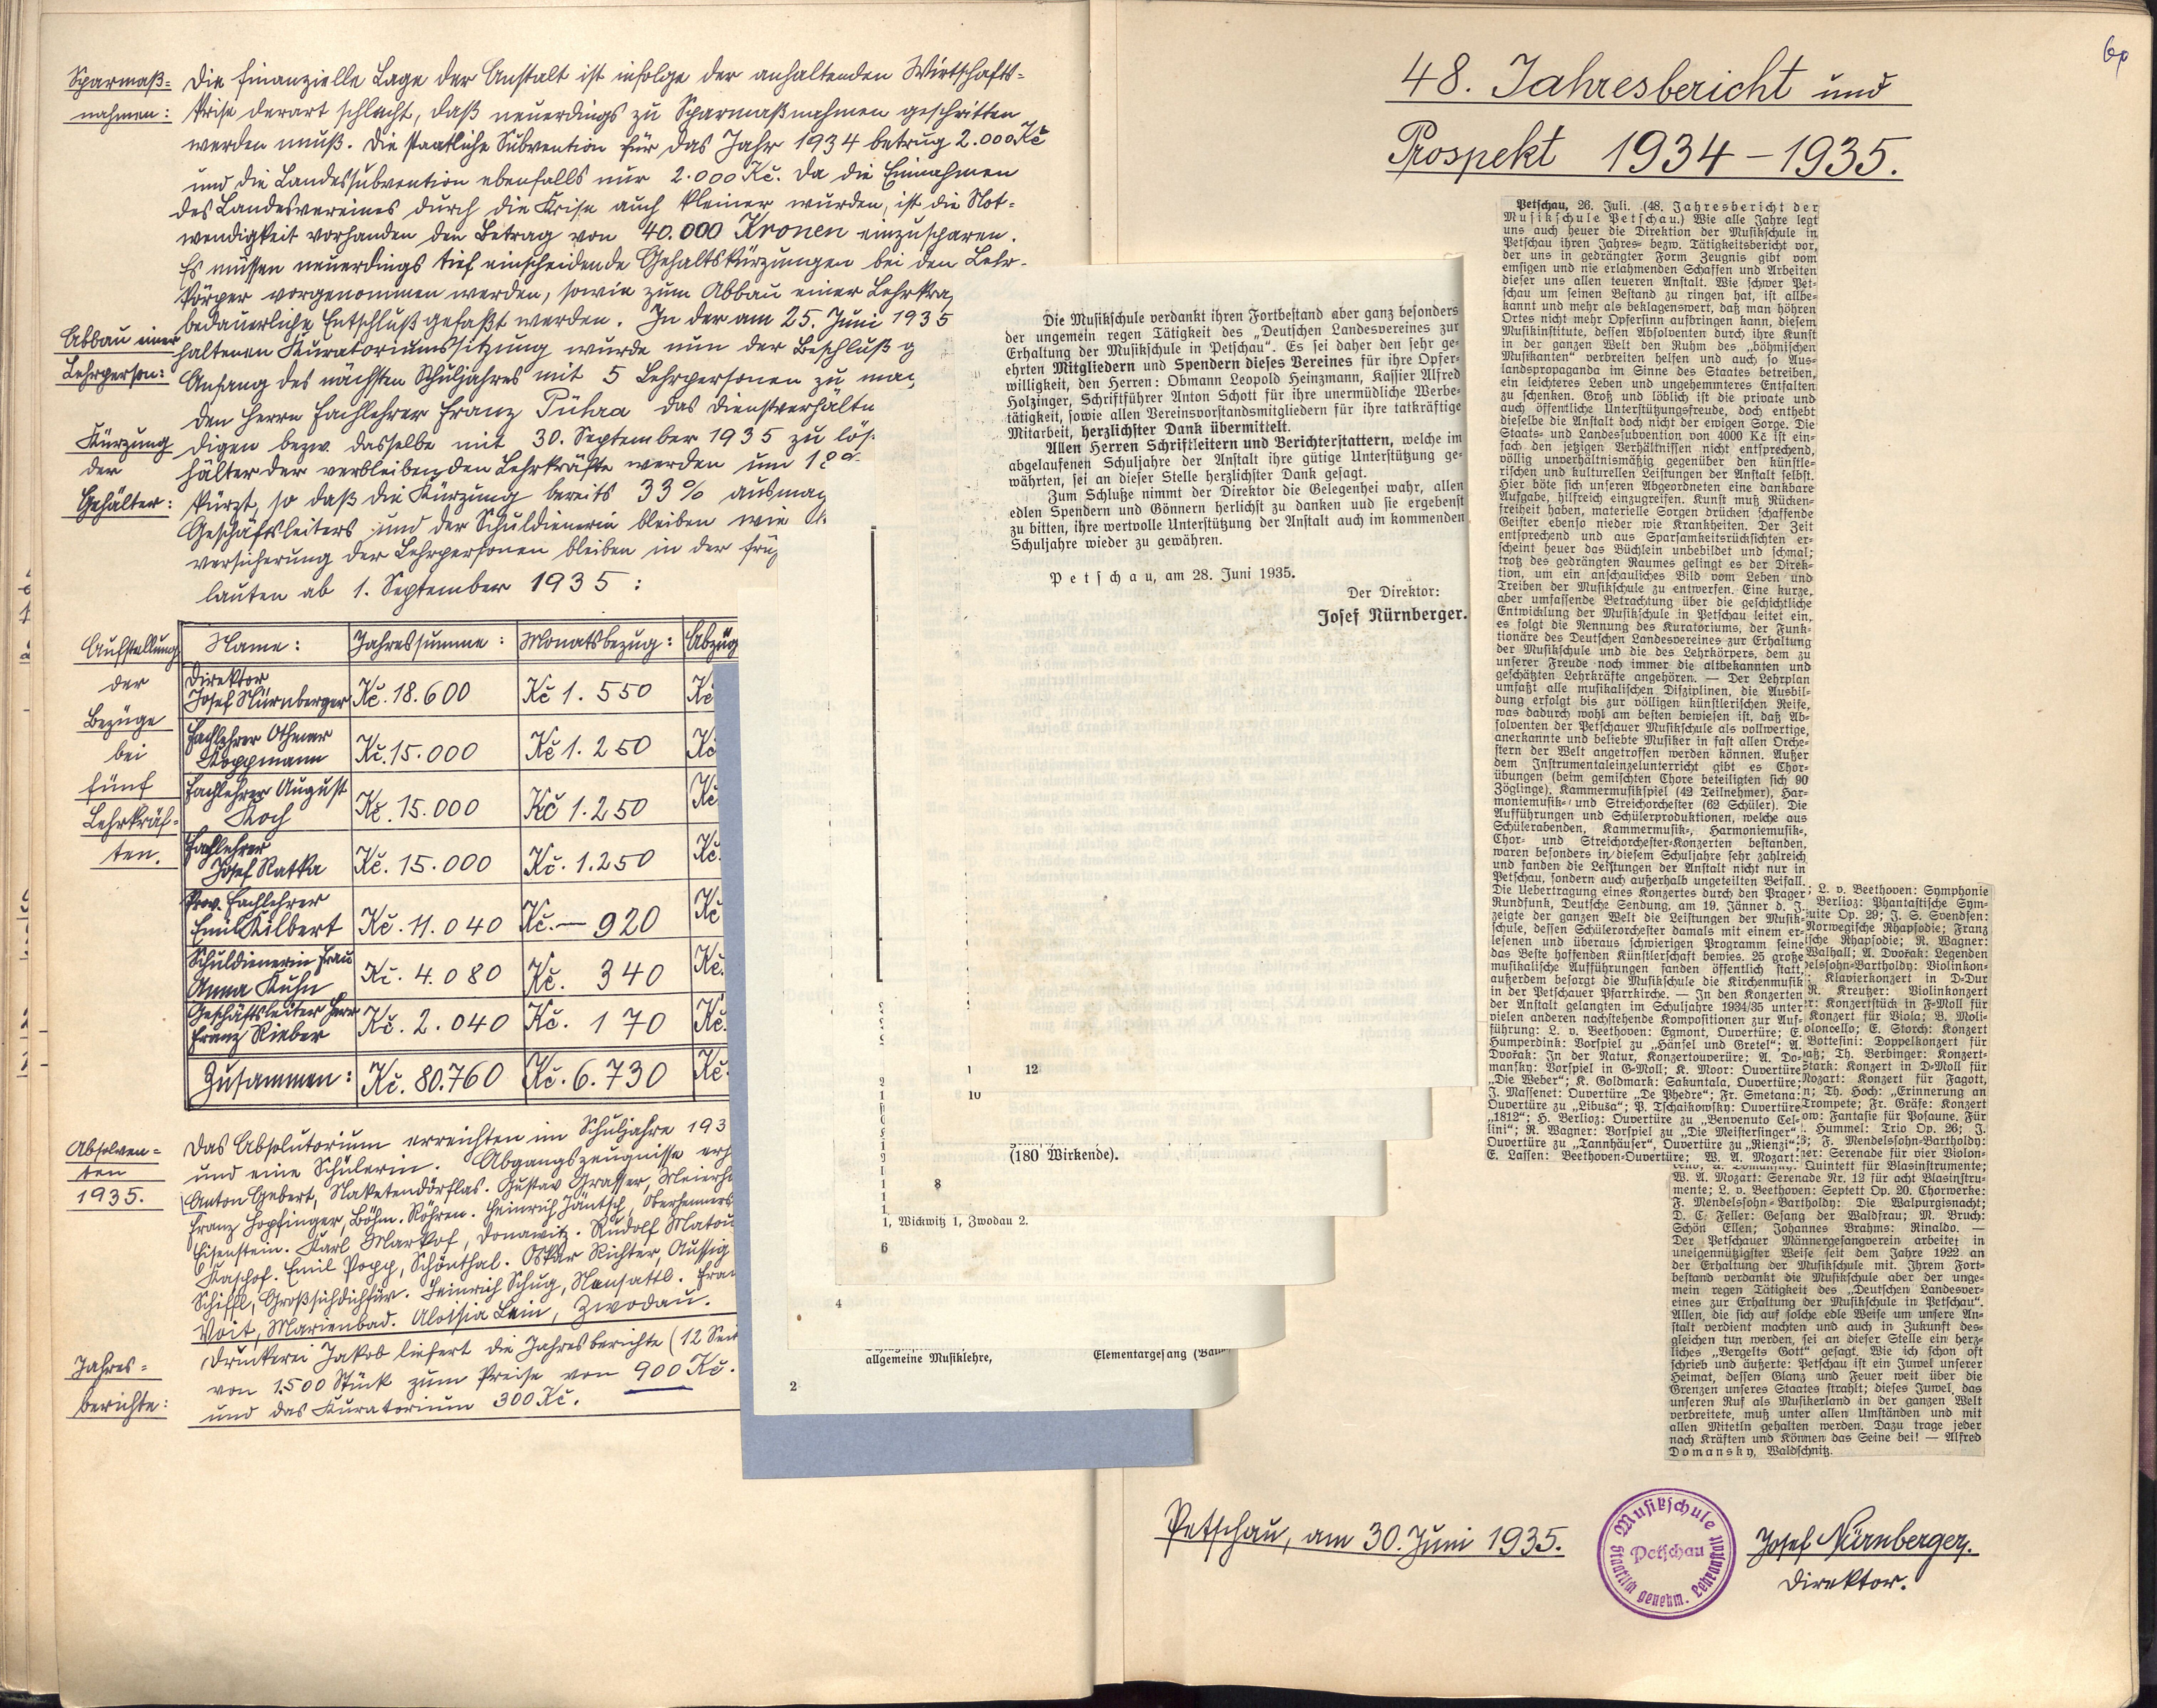 Sparmaß=
nahmen:
Die finanzielle Lage der Anstalt ist infolge der anhaltenden Wirtschafts=
krise derart schlecht, daß neuerdings zu Sparmaßnahmen geschritten
werden muß. Die staatliche Subvention für das Jahr 1934 betrug 2.000 Kč
und die Landessubvention ebenfalls nur 2.000 Kč. Da die Einnahmen
des Landesvereines durch die Krise auch kleiner wurden, ist die Not=
wendigkeit vorhanden den Betrag von 40.000 Kronen einzusparen.
Es müssen neuerdings tief einschneidende Gehaltskürzungen bei den Lehr=
körper vorgenommen werden, sowie zum Abbau einer Lehrkra
bedauerliche Entschluß gefaßt werden. In der am 25. Juni 1935
Abbau einer
Lehrperson:
haltenen Kuratoriumssitzung wurde nun der Beschluß g
Anfang des nächsten Schuljahres mit 5 Lehrpersonen zu ma
den Herrn Fachlehrer Franz Pühra das Dienstverhältn
Kürzung
der
Gehälter:
digen bezw. dasselbe mit 30. September 1935 zu lös
hälter der verbleibenden Lehrkräfte werden um 18
kürzt, so daß die Kürzung bereits 33% ausmac
Geschäftsleiters und der Schuldienerin bleiben wie
versicherung der Lehrpersonen bleiben in der frü
lauten ab 1. September 1935:
Aufstellung
der
Bezüge
bei
fünf
Lehrkräf=
ten.
Name: Jahressumme: Monatsbezug: Abzüg
Direktor
Josef Nürnberger Kč. 18.600 Kč 1.550 Kč
Fachlehrer Othmar
Koppmann Kč. 15.000 Kč 1.250 Kč
Fachlehrer August
Koch Kč. 15.000 Kč 1.250 Kč
Fachlehrer
Josef Ratka Kč. 15.000 Kč. 1.250 Kč.
Prov. Fachlehrer
Emil Kilbert Kč. 11.040 Kč. — 920 Kč
Schuldienerin Frau
Anna Kuhn Kč. 4.080 Kč. 340 Kč.
Geschäftsleiter Herr
Franz Rieber Kč. 2.040 Kč. 170 Kč.
Zusammen: Kč. 80.760 Kč. 6.730 Kč.
Absolven=
ten
1935.
Das Absolutorium erreichten im Schuljahre 193
und eine Schülerin. Abgangszeugnisse erh
Anton Gebert, Naketendörflas. Gustav Grasser, Meierh
Franz Hopfinger, Böhm. Röhren. Heinrich Jäntsch, Oberhenners
Eisenstein. Karl Markof, Donawitz. Rudolf Matou
Kashof. Emil Popp, Schönthal. Oskar Richter, Aussig
Schiffl, Großsichdichfür. Heinrich Schug, Neusattl. Fra
Voit, Marienbad. Aloisia Lein, Zwodau.
Jahres=
berichte:
Druckerei Jakob liefert die Jahresberichte (12 Seit
von 1.500 Stück zum Preise von 900 Kč.
und das Kuratorium 300 Kč.
Die Musikschule verdankt ihren Fortbestand aber ganz besonders
der ungemein regen Tätigkeit des „Deutschen Landesvereines zur
Erhaltung der Musikschule in Petschau“. Es sei daher den sehr ge=
ehrten Mitgliedern und Spendern dieses Vereines für ihre Opfer=
willigkeit, den Herren: Obmann Leopold Heinzmann, Kassier Alfred
Holzinger, Schriftführer Anton Schott für ihre unermüdliche Werbe=
tätigkeit, sowie allen Vereinsvorstandsmitgliedern für ihre tatkräftige
Mitarbeit, herzlichster Dank übermittelt.
Allen Herren Schriftleitern und Berichterstattern, welche im
abgelaufenen Schuljahre der Anstalt ihre gütige Unterstützung ge=
währten, sei an dieser Stelle herzlichster Dank gesagt.
Zum Schluße nimmt der Direktor die Gelegenhei wahr, allen
edlen Spendern und Gönnern herlichst zu danken und sie ergebenst
zu bitten, ihre wertvolle Unterstützung der Anstalt auch im kommenden
Schuljahre wieder zu gewähren.
Petschau, am 28. Juni 1935.
Der Direktor:
Josef Nürnberger.
12
10
(180 Wirkende).
8
1, Wickwitz 1, Zwodau 2.
6
4
allgemeine Musiklehre, Elementargesang
2
60
48. Jahresbericht und
Prospekt 1934–1935.
Petschau, 26. Juli. (48. Jahresbericht der
Musikschule Petschau.) Wie alle Jahre legt
uns auch heuer die Direktion der Musikschule in
Petschau ihren Jahres= bezw. Tätigkeitsbericht vor,
der uns in gedrängter Form Zeugnis gibt vom
emsigen und nie erlahmenden Schaffen und Arbeiten
dieser uns allen teueren Anstalt. Wie schwer Pet=
schau um seinen Bestand zu ringen hat, ist allbe=
kannt und mehr als beklagenswert, daß man höhren
Ortes nicht mehr Opfersinn aufbringen kann, diesem
Musikinstitute, dessen Absolventen durch ihre Kunst
in der ganzen Welt den Ruhm des „böhmischen
Musikanten“ verbreiten helfen und auch so Aus=
landspropaganda im Sinne des Staates betreiben,
ein leichteres Leben und ungehemmteres Entfalten
zu schenken. Groß und löblich ist die private und
auch öffentliche Unterstützungsfreude, doch enthebt
dieselbe die Anstalt doch nicht der ewigen Sorge. Die
Staats= und Landessubvention von 4000 Kč ist ein=
fach den jetzigen Verhältnissen nicht entsprechend,
völlig unverhältnismäßig gegenüber den künstle=
rischen und kulturellen Leistungen der Anstalt selbst.
Hier böte sich unseren Abgeordneten eine dankbare
Aufgabe, hilfreich einzugreifen. Kunst muß Rücken=
freiheit haben, materielle Sorgen drücken schaffende
Geister ebenso nieder wie Krankheiten. Der Zeit
entsprechend und aus Sparsamkeitsrücksichten er=
scheint heuer das Büchlein unbebildet und schmal;
trotz des gedrängten Raumes gelingt es der Direk=
tion, um ein anschauliches Bild vom Leben und
Treiben der Musikschule zu entwerfen. Eine kurze,
aber umfassende Betrachtung über die geschichtliche
Entwicklung der Musikschule in Petschau leitet ein,
es folgt die Nennung des Kuratoriums, der Funk=
tionäre des Deutschen Landesvereines zur Erhaltung
der Musikschule und die des Lehrkörpers, dem zu
unserer Freude noch immer die altbekannten und
geschätzten Lehrkräfte angehören. — Der Lehrplan
umfaßt alle musikalischen Disziplinen, die Ausbil=
dung erfolgt bis zur völligen künstlerischen Reife,
was dadurch wohl am besten bewiesen ist, daß Ab=
solventen der Petschauer Musikschule als vollwertige,
anerkannte und beliebte Musiker in fast allen Orche=
stern der Welt angetroffen werden können. Außer
dem Instrumentaleinzelunterricht gibt es Chor=
übungen (beim gemischten Chore beteiligten sich 90
Zöglinge), Kammermusikspiel (42 Teilnehmer), Har=
moniemusik= und Streichorchester (62 Schüler). Die
Aufführungen und Schülerproduktionen, welche aus
Schülerabenden, Kammermusik=, Harmoniemusik=,
Chor= und Streichorchester=Konzerten bestanden,
waren besonders in diesem Schuljahre sehr zahlreich
und fanden die Leistungen der Anstalt nicht nur in
Petschau, sondern auch außerhalb ungeteilten Beifall.
Die Uebertragung eines Konzertes durch den Prager
Rundfunk, Deutsche Sendung, am 19. Jänner d. J.
zeigte der ganzen Welt die Leistungen der Musik=
schule, dessen Schülerorchester damals mit einem er=
lesenen und überaus schwierigen Programm seine
das Beste hoffenden Künstlerschaft bewies. 25 große
musikalische Aufführungen fanden öffentlich statt,
außerdem besorgt die Musikschule die Kirchenmusik
in der Petschauer Pfarrkirche. — In den Konzerten
der Anstalt gelangten im Schuljahre 1934/35 unter
vielen anderen nachstehende Kompositionen zur Auf=
führung: L. v. Beethoven: Egmont, Ouvertüre; E.
Humperdink: Vorspiel zu „Hänsel und Gretel“; A.
Dvořak: In der Natur, Konzertouverüre; A. Do=
mansky: Vorspiel in G=Moll; K. Moor: Ouvertüre
„Die Weber“; K. Goldmark: Sakuntala, Ouvertüre;
J. Massenet: Ouvertüre „De Phedre“; Fr. Smetana:
Ouvertüre zu „Libuša“; P. Tschaikowsky: Ouvertüre
„1812“; H. Berlioz: Ouvertüre zu „Benvenuto Cel=
lini“; R. Wagner: Vorspiel zu „Die Meistersinger“
Ouvertüre zu „Tannhäuser“, Ouvertüre zu „Rienzi“;
E. Lassen: Beethoven=Ouvertüre; W. A. Mozart:
; L. v. Beethoven: Symphonie
Berlioz: Phantastische Sym=
uite Op. 29; J. S. Svendsen:
Norwegische Rhapsodie; Franz
ische Rhapsodie; R. Wagner:
Walhall; A. Dvořak: Legenden
elssohn=Bartholdy: Violinkon=
: Klavierkonzert in D=Dur
R. Kreutzer: Violinkonzert
r: Konzertstück in F=Moll für
Konzert für Viola; B. Moli=
oloncello; E. Storch: Konzert
Bottesini: Doppelkonzert für
aß; Th. Verbinger: Konzert=
Stark: Konzert in D=Moll für
Mozart: Konzert für Fagott,
n; Th. Hoch: „Erinnerung an
Trompete; Fr. Gräfe: Konzert
ow: Fantasie für Posaune. Für
Hummel: Trio Op. 26; J.
3; F. Mendelssohn=Bartholdy:
er: Serenade für vier Violon=
Quintett für Blasinstrumente;
W. A. Mozart: Serenade Nr. 12 für acht Blasinstru=
mente; L. v. Beethoven: Septett Op. 20. Chorwerke:
F. Mendelssohn=Bartholdy: Die Walpurgisnacht;
D. C. Feller: Gesang der Waldfrau; M. Bruch:
Schön Ellen; Johannes Brahms: Rinaldo. —
Der Petschauer Männergesangverein arbeitet in
uneigennützigster Weise seit dem Jahre 1922 an
der Erhaltung der Musikschule mit. Ihrem Fort=
bestand verdankt die Musikschule aber der unge=
mein regen Tätigkeit des „Deutschen Landesver=
eines zur Erhaltung der Musikschule in Petschau“.
Allen, die sich auf solche edle Weise um unsere An=
stalt verdient machten und auch in Zukunft des=
gleichen tun werden, sei an dieser Stelle ein herz=
liches „Vergelts Gott“ gesagt. Wie ich schon oft
schrieb und äußerte: Petschau ist ein Juwel unserer
Heimat, dessen Glanz und Feuer weit über die
Grenzen unseres Staates strahlt; dieses Juwel, das
unseren Ruf als Musikerland in der ganzen Welt
verbreitete, muß unter allen Umständen und mit
allen Mitetln gehalten werden. Dazu trage jeder
nach Kräften und Können das Seine bei! — Alfred
Domansky, Waldschnitz.
Petschau, am 30. Juni 1935.
Musikschule
Petschau
Staatlich genehm. Lehranstalt
Josef Nürnberger.
Direktor.